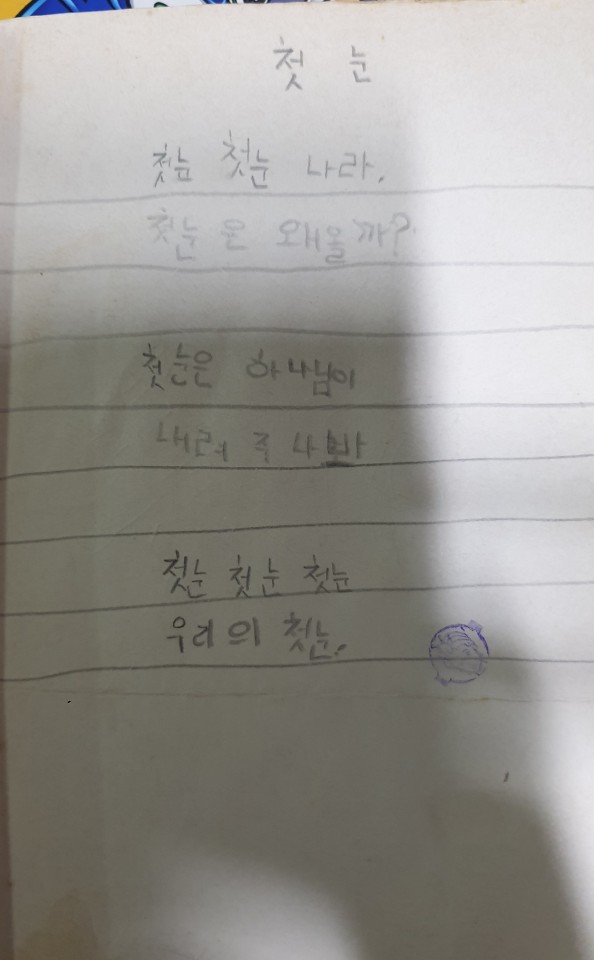 첫 눈
첫눈 첫눈 나라.
첫눈 은 왜올까?
첫눈은 하나님이
내려 주 나봐
첫눈 첫눈 첫눈
우리의 첫눈.